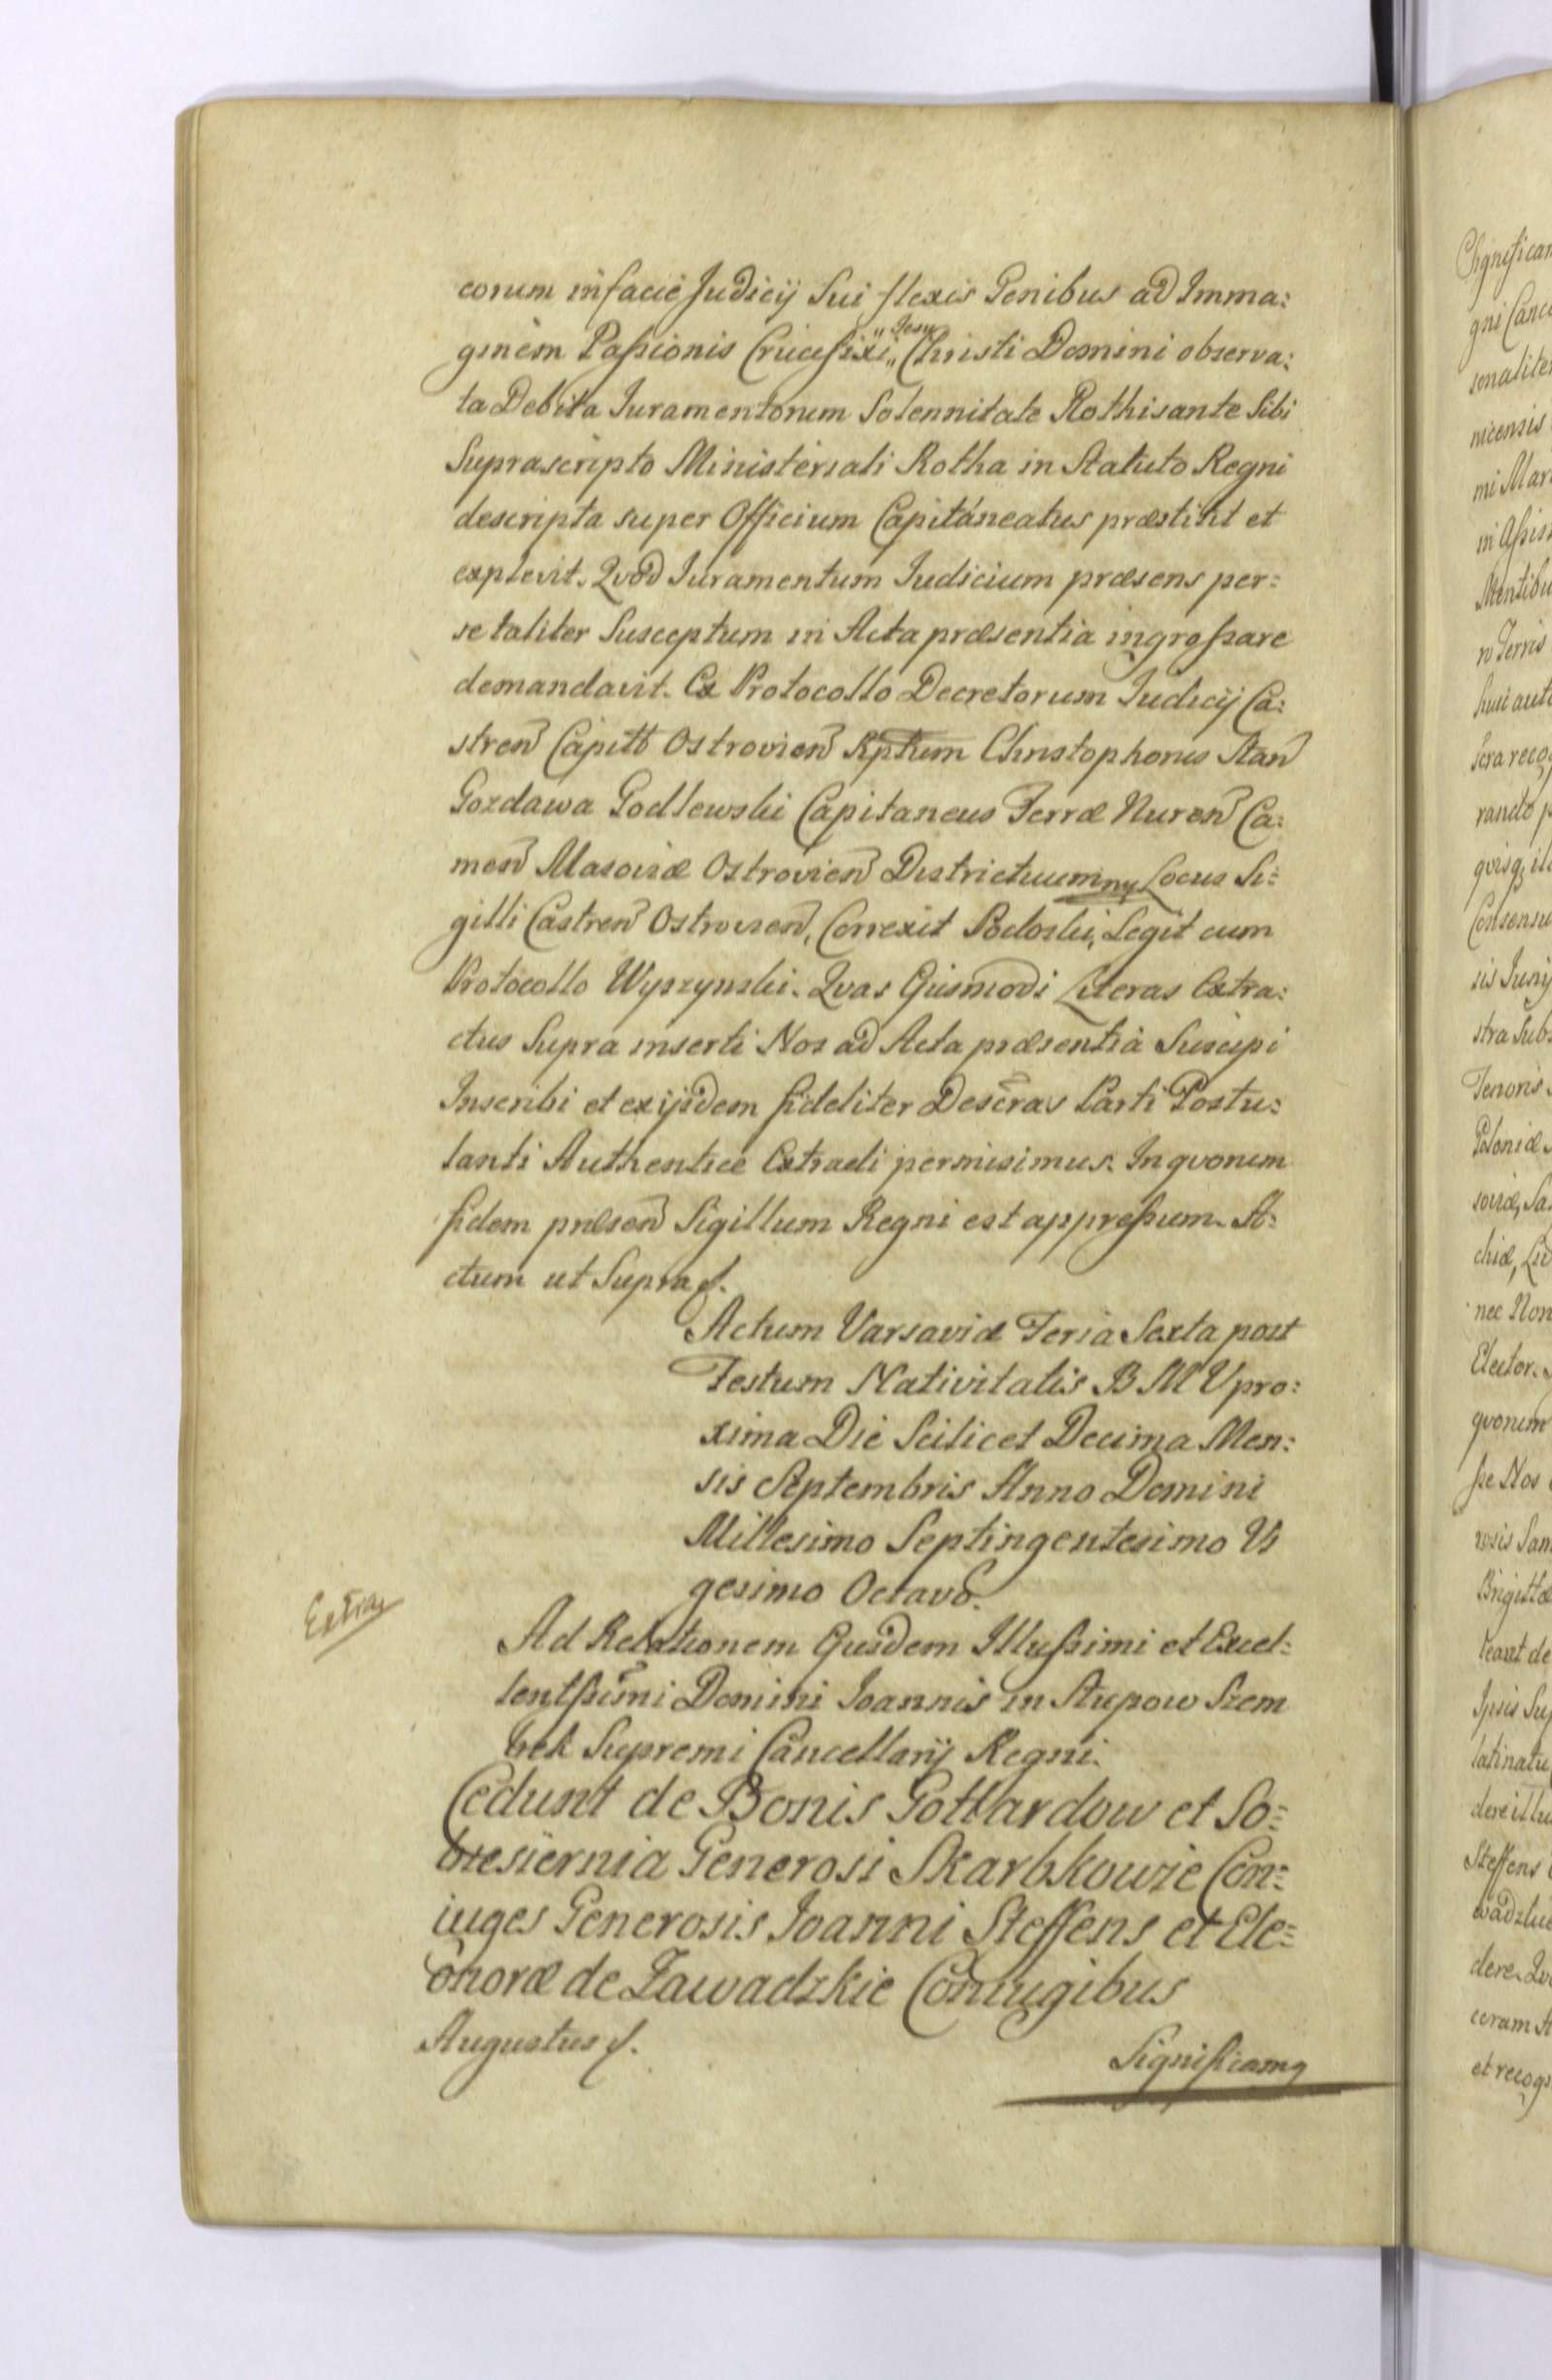 corum in facie Judicij Sui flexis Genibus ad Imma:
ginem Paßionis Crucifixi „ Jesu „ Christi Domini observa:
ta Debita Juramentorum Solennitate Rothisante Sibi
Suprascripto Ministeriali Rotha in Statuto Regni
descripta super Officium Capitaneatus præstitit et
explevit. Qvod Juramentum Judicium præsens per:
se taliter Susceptum in Acta præsentia ingroßare
demandavit. Ex Protocollo Decretorum Judicij Ca:
stren Capitt Ostrovien Rptum Christophorus Stan
Gozdawa Godlewski Capitaneus Terræ Nuren Ca:
men Masoviæ Ostrovien Districtuum mp Locus Si:
gilli Castren Ostrovien, Correxit Podoski, Legit cum
Protocollo Wyszynski. Qvas Eiusmodi Literas Extra:
ctus Supra inserti Nos ad Acta præsentia Suscipi
Inscribi et ex ijsdem fideliter Descras Parti Postu:
lanti Authentice Extradi permisimus. In qvorum
fidem præsen Sigillum Regni est appreßum. A:
ctum ut Supra.
Actum Varsaviæ Feria Sexta post
Festum Nativitatis B M V pro:
xima Die Scilicet Decima Men:
sis Septembris Anno Domini
Millesimo Septingentesimo Vi
gesimo Octavo.
Extrad
Ad Relationem Eiusdem Illußimi et Excel:
lentßimi Domini Joannis in Stupow Szem
bek Supremi Cancellarij Regni.
Cedunt de Bonis Gottardow et So:
biesiernia Generosi Skarbkowie Con:
iuges Generosis Joanni Steffens et Ele:
onoræ de Zawadzkie Coniugibus
Augustus.
Significamq
Significam
gni Canc
sonaliter
nicensis
mi Mar
in Aßis
Mentibu
n Terris
sui aut
sera reco
rando p
qvisq; il
Consensu
sis Junij
stra Sub
Tenoris
Poloniæ
soviæ, Sa
chiæ, Li
nec Non
Elector.
qvorum
ße Nos
rosis San
Brigittæ
leant de
Ipsis Sup
latinatu
dere illu
Steffens
wadzkie
dere. Qv
coram A
et recogn